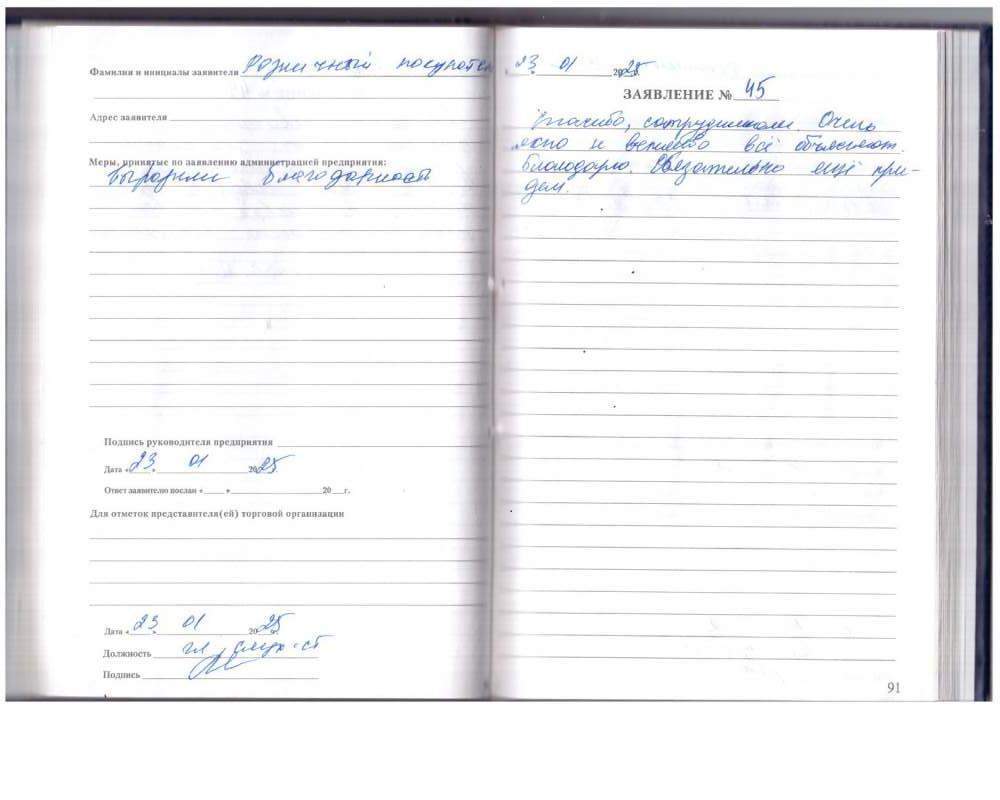 Фамилия и инициалы заявителя Розничный покупател
Адрес заявителя
Меры, принятые по заявлению администрацией предприятия:
выразили благодарность
Подпись руководителя предприятия
Дата «23» 01 2025
Ответ заявителю послан « » 20 г.
Для отметок представителя(ей) торговой организации
Дата «23» 01 2025
Должность гл
Подпись
23 01 2025
ЗАЯВЛЕНИЕ № 45
Спасибо, сотрудникам. Очень
ясно и вежливо всё объясняют.
Благодарю. Обязательно ещё при-
дем.
91